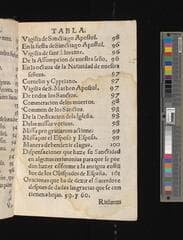 TABLA.
Vigilia de Sanctiago Apostol. 98
En la fiesta de Sanctiago Apostol. 98
Vigilia de sant
De la Assumpcion de nuestra seño. 96
En la octaua de la Natiuidad de nuestra
señora. 97
Cornelio y Cypriano. 97
Vigilia de S. Matheo Apostol. 97
De todos los Sanctos. 97
Commemoracion de los muertos. 98
Commun de los Sanctos. 98
De la Dedicacion dela Iglesia. 98
Delas missas votiuas. 98
Missa pro gratiarum actione. 98
Missa por el Esposo y Esposa. 98
Manera de bendezir el
Dispensaciones que haze su Sanctidad
en algunas cerimonias para que se pue
dan hazer conforme a la antigua costum
bre de los Obispados de España.
Oraciones que ha de dezir el sacerdote
despues de dadas las gracias que se con
tienen a hojas. 59. y 60.